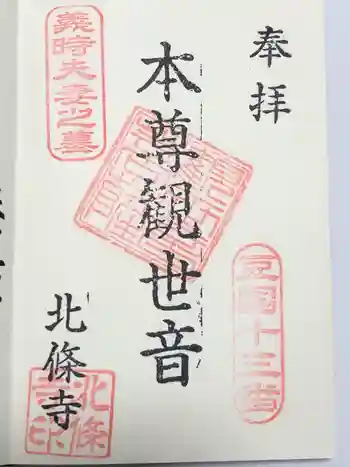 奉拝
豆國十三番
本尊觀世音
義時夫妻之墓
北條寺
北條寺印